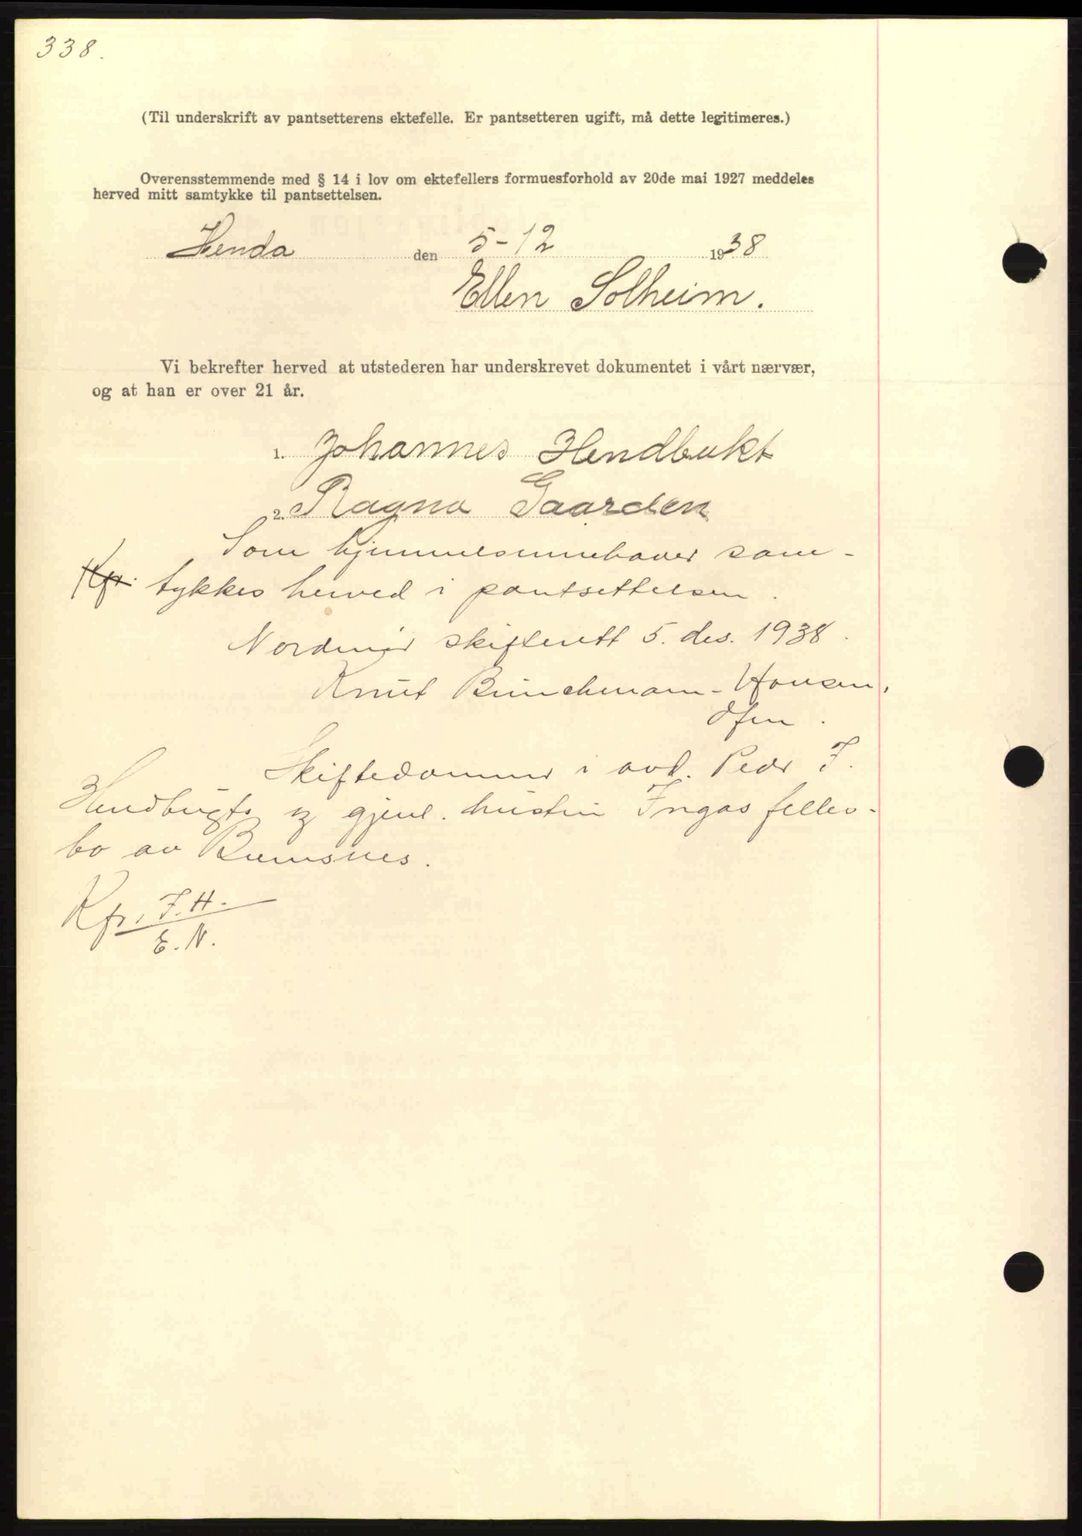 338.
(Til underskrift av pantsetterens ektefelle. Er pantsetteren ugift, må dette legitimeres.)
Overensstemmende med § 14 i lov om ektefellers formuesforhold av 20de mai 1927 meddeles
herved mitt samtykke til pantsettelsen.
Henda den 5-12 1938
Ellen Solheim.
Vi bekrefter herved at utstederen har underskrevet dokumentet i vårt nærvær,
og at han er over 21 år.
1. Johannes Hendbukt
2. Ragna Gaarden
Som hjemmelsinnehaver sam-
Kfr. tykkes herved i pantsettelsen.
Nordmør skifterett 5. des. 1938.
Knut Bünchmann-Hansen,
dfm.
Skiftedommer i avd. Peder I.
Hendbugts og gjenl. hustru Ingas felles-
bo av Bremsnes.
Kfr. I.H.
E.N.